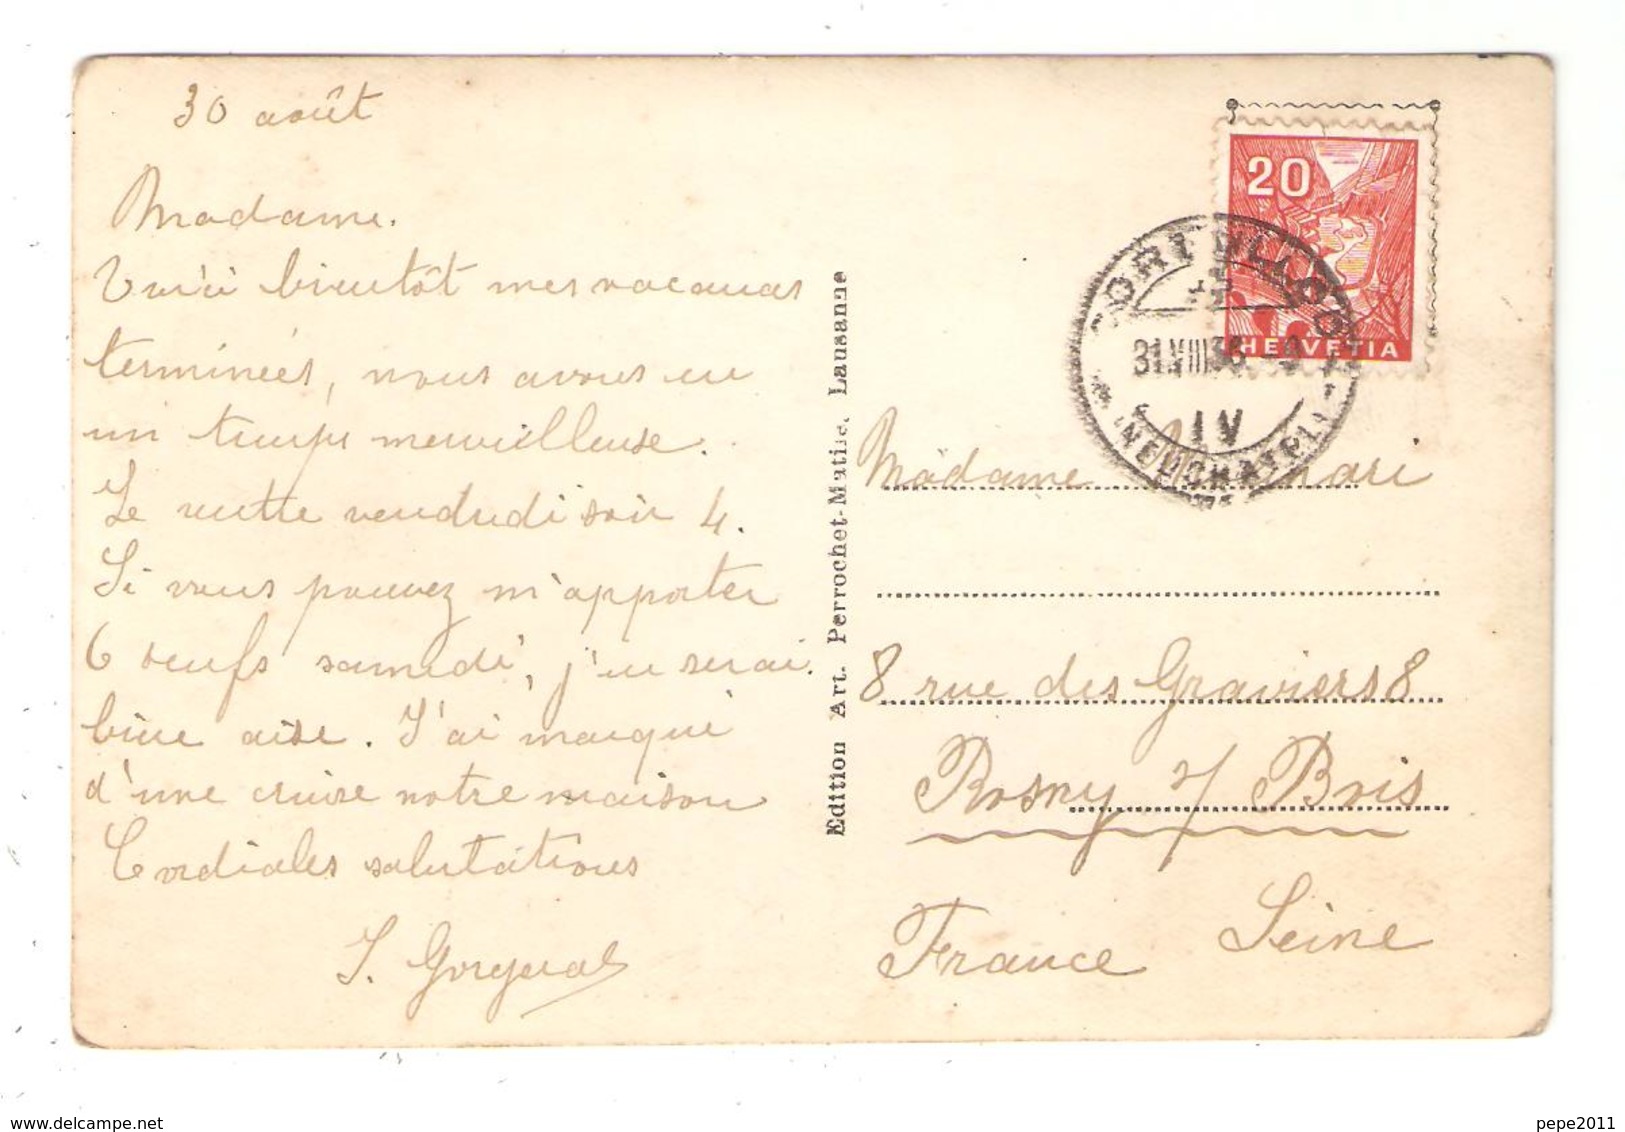 30 août
Madame.
Voici bientôt mes vacances
terminées, nous avons eu
un temps merveilleuse.
Je rentre vendredi soir 4.
Si vous pouvez m'apporter
6 oeufs samedi, j'en serai
bien aise. J'ai marqué
d'une croix notre maison
Cordiales salutations
J. Gorgerat
Edition Art. Perrochet-Matile, Lausanne
20
HELVETIA
CORTAILLOD
31.VIII.36
IV
(NEUCHATEL)
Madame
8 rue des Graviers 8
Rosny s/ Bois
Seine
France
pepe2011